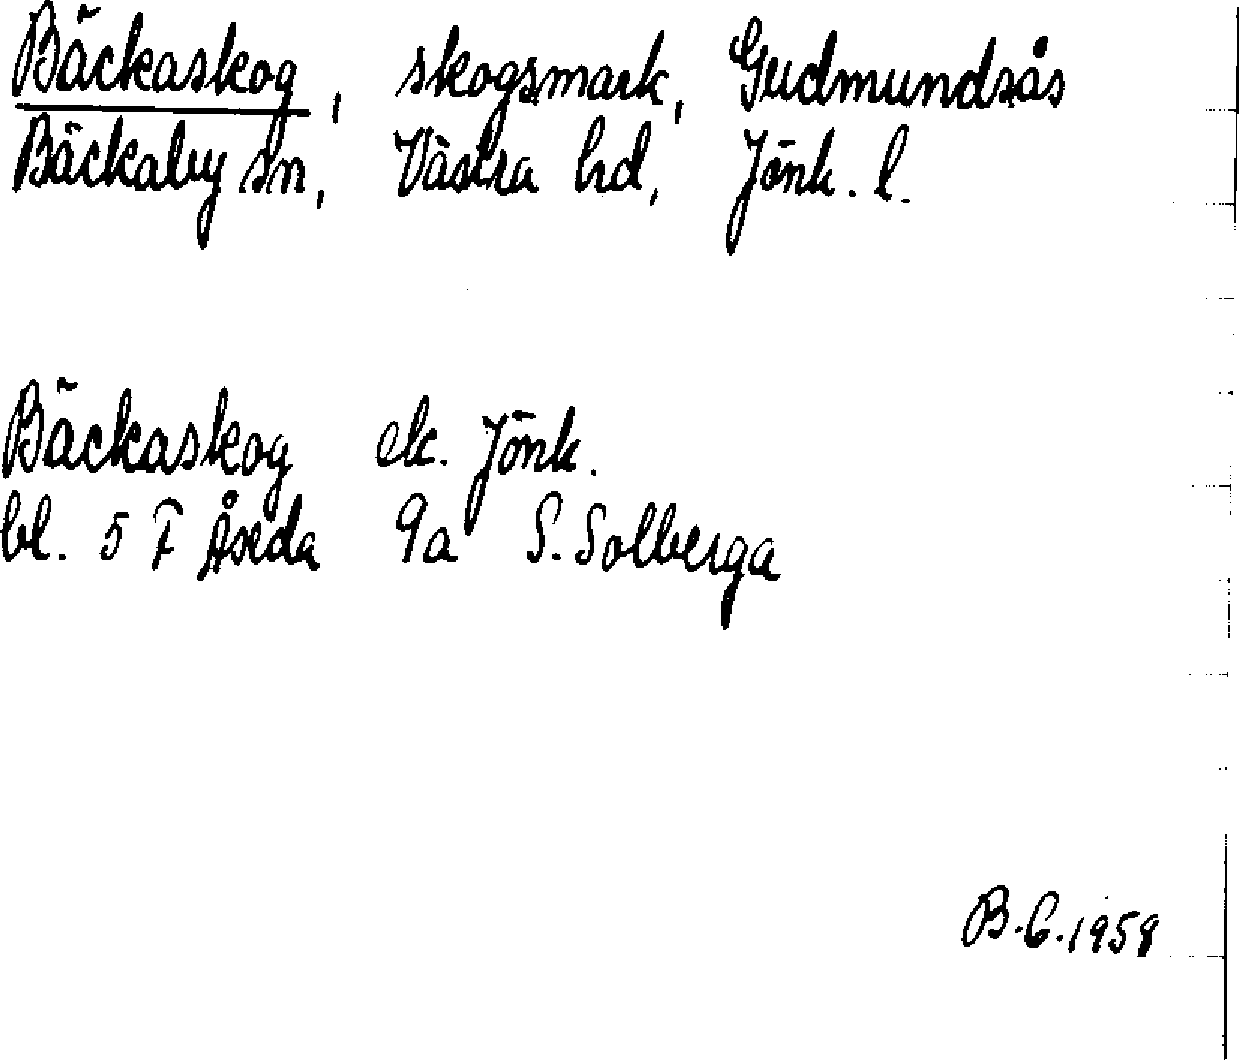 Bäckaskog, skogsmark, Gudmundsås
Bäckaby sn, Västra hd, Jönk. l.
Bäckaskog ek. Jönk.
bl. 5 F Åseda 9a S. Solberga
B.G.1958